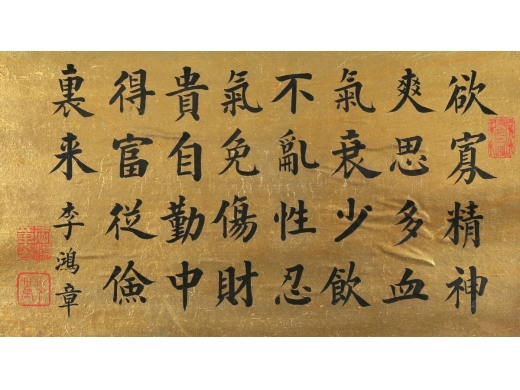 欲寡精神
爽思多血
氣衰少飲
不亂性忍
氣免傷財
貴自勤中
得富從儉
裏来
李鴻章